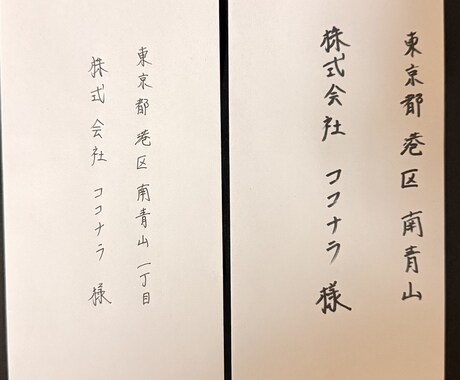 東京都港区南青山一丁目
株式会社 ココナラ 様
東京都港区 南青山
株式会社 ココナラ 様